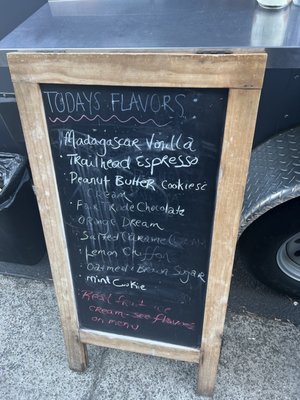 TODAYS FLAVORS
• Madagascar Vanilla
• Trailhead Espresso
• Peanut Butter Cookies &
Cream
• Fair Trade Chocolate
• Orange Dream
• Salted Caramel
• Lemon Chiffon
• Oatmeal Brown Sugar
• mint Cookie
Real fruit ice
cream - see flavors
on menu